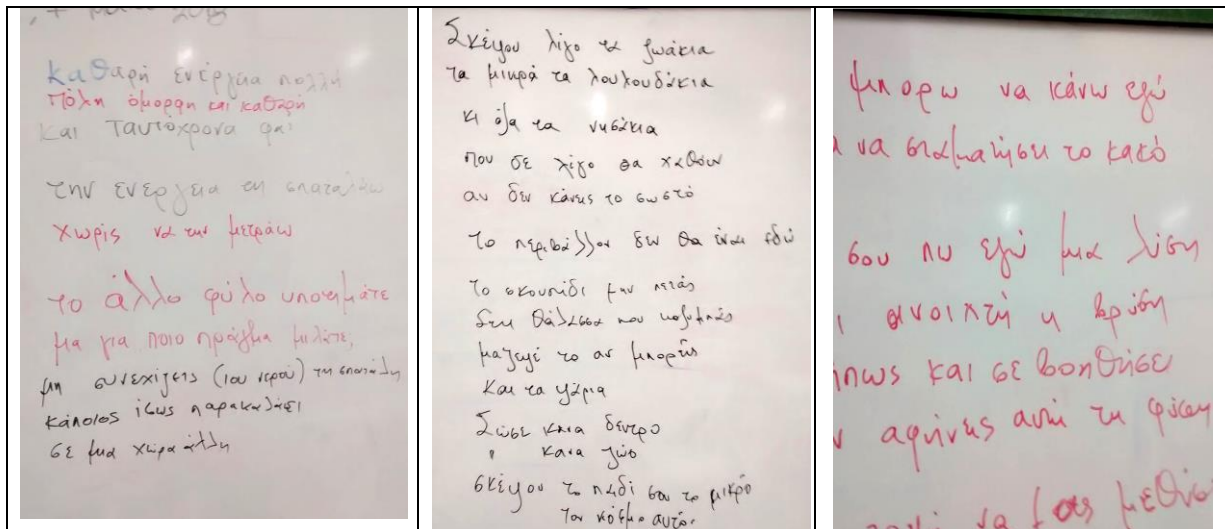 Καθαρή ενέργεια πολλή
Πόλη όμορφη και καθαρή
Και Ταυτόχρονα
την ενέργεια τη σπαταλάω
χωρίς να την μετράω
το άλλο φύλο υποτιμάτε
μα για ποιο πράγμα μιλάτε;
μη συνεχίζεις (του νερού) τη σπατάλη
κάποιος ίσως παρακαλάει
σε μια χώρα άλλη
Σκέψου λίγο τα ζωάκια
τα μικρά τα λουλουδάκια
κι όλα τα νησάκια
που σε λίγο θα χαθούν
αν δεν κάνεις το σωστό
το περιβάλλον δεν θα είναι εδώ
το σκουπίδι μην πετάς
στη θάλασσα που κολυμπάς
μάζεψέ το αν μπορείς
και τα ψάρια
Σώσε κανα δεντρο
" κανα ζώο
σκέψου το παιδί σου το μικρό
τον κόσμο αυτό.
μπορω να κάνω εγώ
να σταματήσει το κακό
σου πω εγώ μια λύση
ανοιχτή η βρύση
και σε βοηθήσε
αφήνεις αυτή τη φύση
να